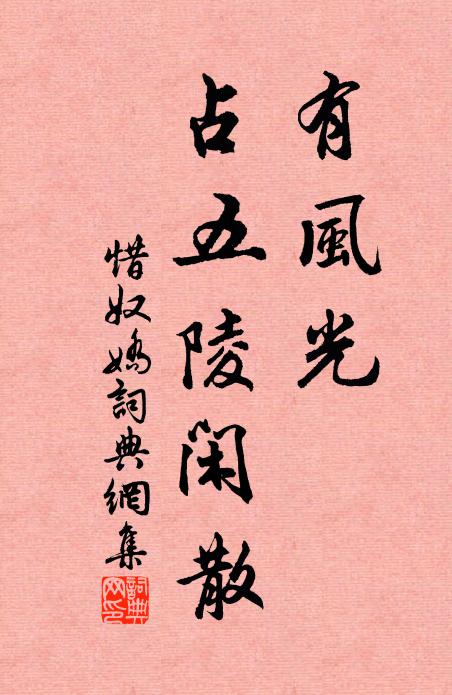 有風光
占五陵閑散
惜奴嬌詞典網集
詞典網印